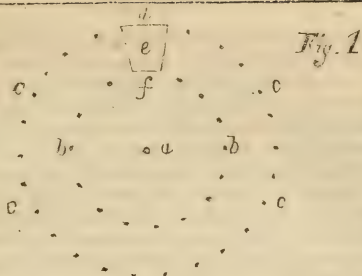 d
e Fig. 1
f
c c
b a b
c c